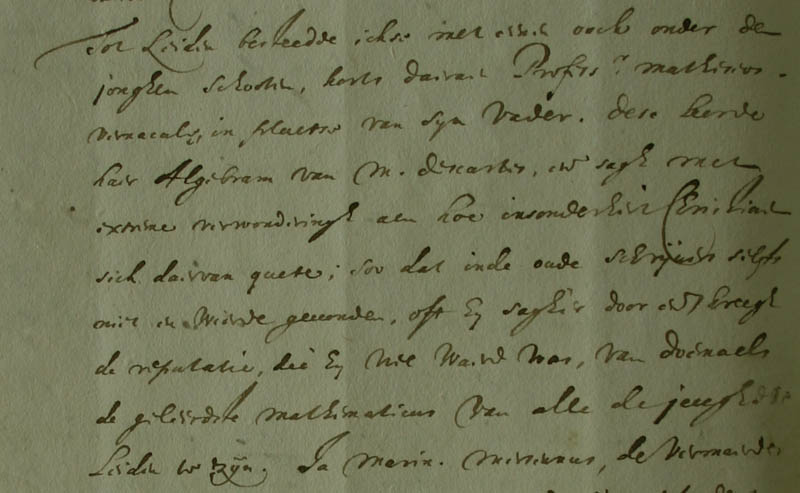 Tot Leiden besteedde ickse met eenen oock onder de
jonghen Schooten, korts daernaer Profess.r matheseos
vernacula, in plaetse van syn Vader. dese leerde
haer Algebram van M. descartes, en sagh met
extreme verwonderingh aen hoe insonderheit Christiaen
sich daervan quete; soo dat inde oude schrijvers selfs
niet en wierde gevonden, oft hy sagh'er door en kreegh
de reputatie, die hy wel waerd was, van doenaels
de geleerdste mathematicus van alle de jeughd
Leiden te zijn. Ja Marin. Mersennus, de vermaerde